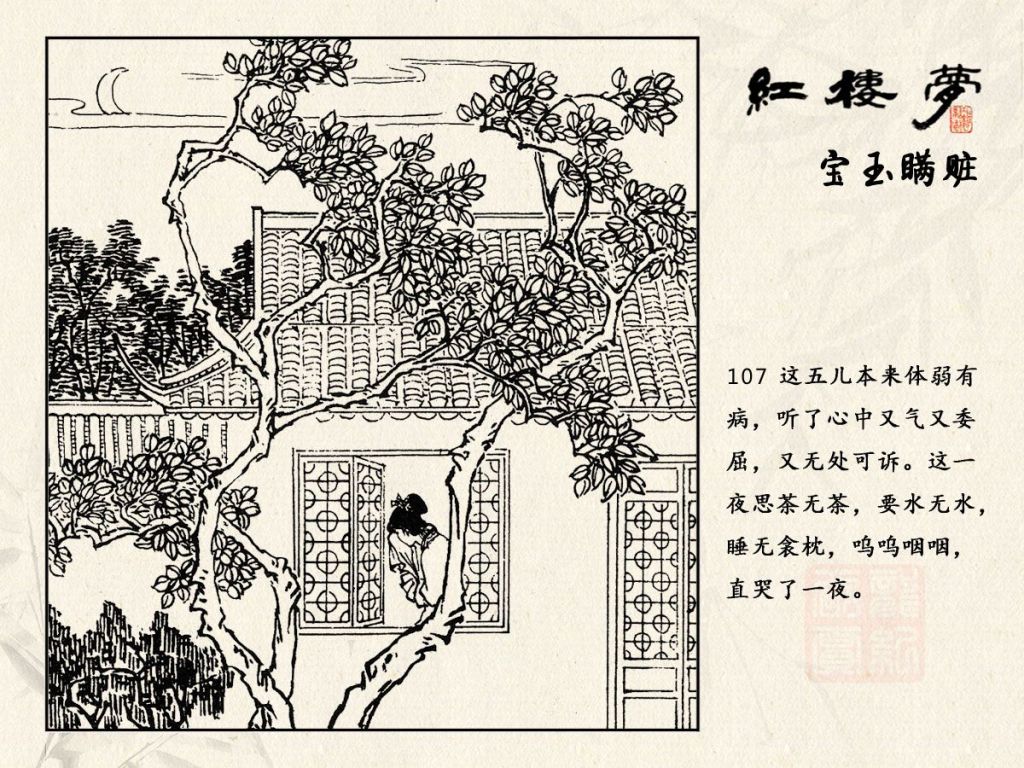 红楼梦
宝玉瞒赃
107 这五儿本来体弱有
病，听了心中又气又委
屈，又无处可诉。这一
夜思茶无茶，要水无水，
睡无衾枕，呜呜咽咽，
直哭了一夜。